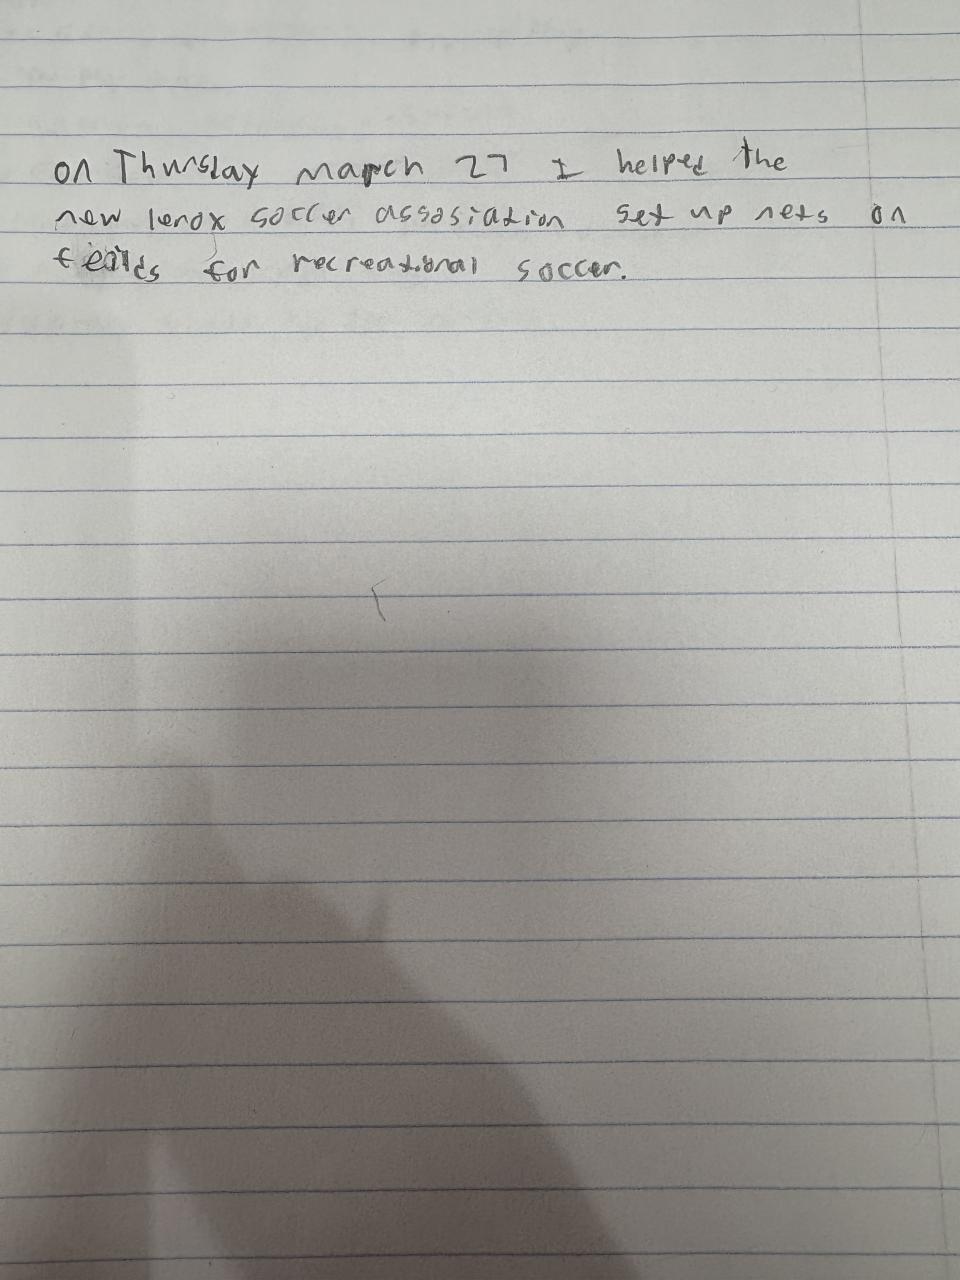 on Thursday march 27 I helped the
new lenox soccer assosiation set up nets on
feilds for recreational soccer.